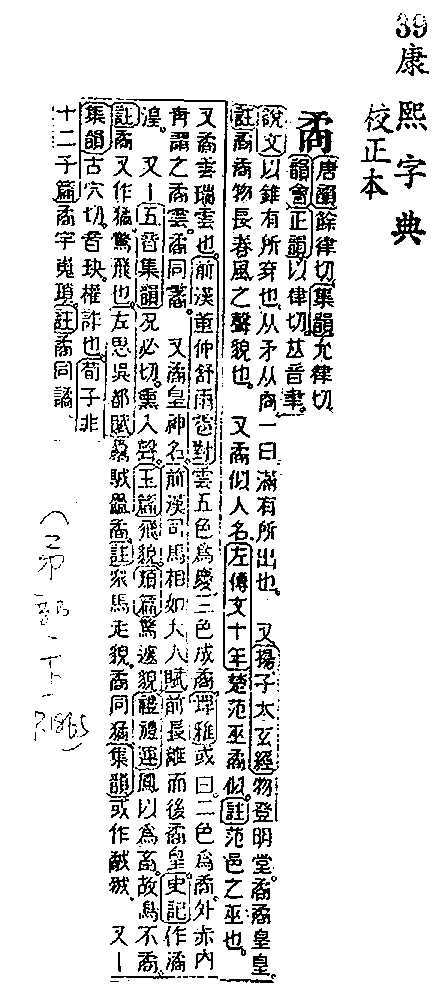 39
康熙字典
校正本
矞
唐韻餘律切集韻允律切
韻會正韻以律切𠀤音聿
說文以錐有所穿也从矛从㕯一曰滿有所出也 又揚子太玄經物登明堂矞矞皇皇
註矞矞物長春風之聲貌也 又矞似人名左傳文十年楚范巫矞似註范邑之巫也
又矞雲瑞雲也前漢董仲舒雨雹對雲五色爲慶三色成矞埤雅或曰二色爲矞外赤內
靑謂之矞雲矞同霱 又矞皇神名前漢司馬相如大人賦前長離而後矞皇史記作潏
湟 又一五音集韻況必切熏入聲玉篇飛貌類篇驚遽貌禮禮運鳳以為畜故鳥不矞
註矞又作獝驚飛也左思吳都賦驫駥飍矞註衆馬走貌矞同獝集韻或作㓤 又一
集韻古穴切音玦權詐也荀子非
十二子篇矞宇嵬瑣註矞同譎